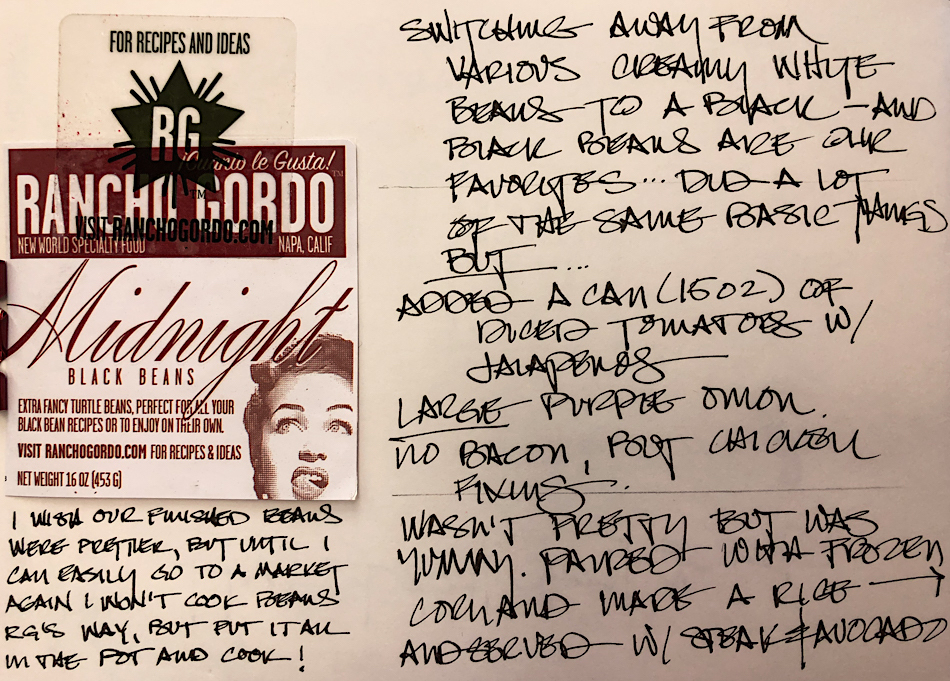 FOR RECIPES AND IDEAS
RG
¡Cuanto le Gusta!
RANCHO GORDO
VISIT RANCHOGORDO.COM
NEW WORLD SPECIALTY FOOD
NAPA, CALIF
Midnight
BLACK BEANS
EXTRA FANCY TURTLE BEANS, PERFECT FOR ALL YOUR
BLACK BEAN RECIPES OR TO ENJOY ON THEIR OWN.
VISIT RANCHOGORDO.COM FOR RECIPES & IDEAS
NET WEIGHT 16 OZ (453 G)
I WISH OUR FINISHED BEANS
WERE PRETTIER, BUT UNTIL I
CAN EASILY GO TO A MARKET
AGAIN I WON'T COOK BEANS
RG'S WAY, BUT PUT IT ALL
IN THE POT AND COOK!
SWITCHING AWAY FROM
VARIOUS CREAMY WHITE
BEANS TO A BLACK - AND
BLACK BEANS ARE OUR
FAVORITES... DID A LOT
OF THE SAME BASIC THINGS
BUT ...
ADDED A CAN (15 OZ) OF
DICED TOMATOES W/
JALAPENOS
LARGE PURPLE ONION.
NO BACON, BUT CHICKEN
FIXINGS.
WASN'T PRETTY BUT WAS
YUMMY. PAIRED WITH FROZEN
CORN AND MADE A RICE →
AND SERVED W/ STEAK & AVOCADO